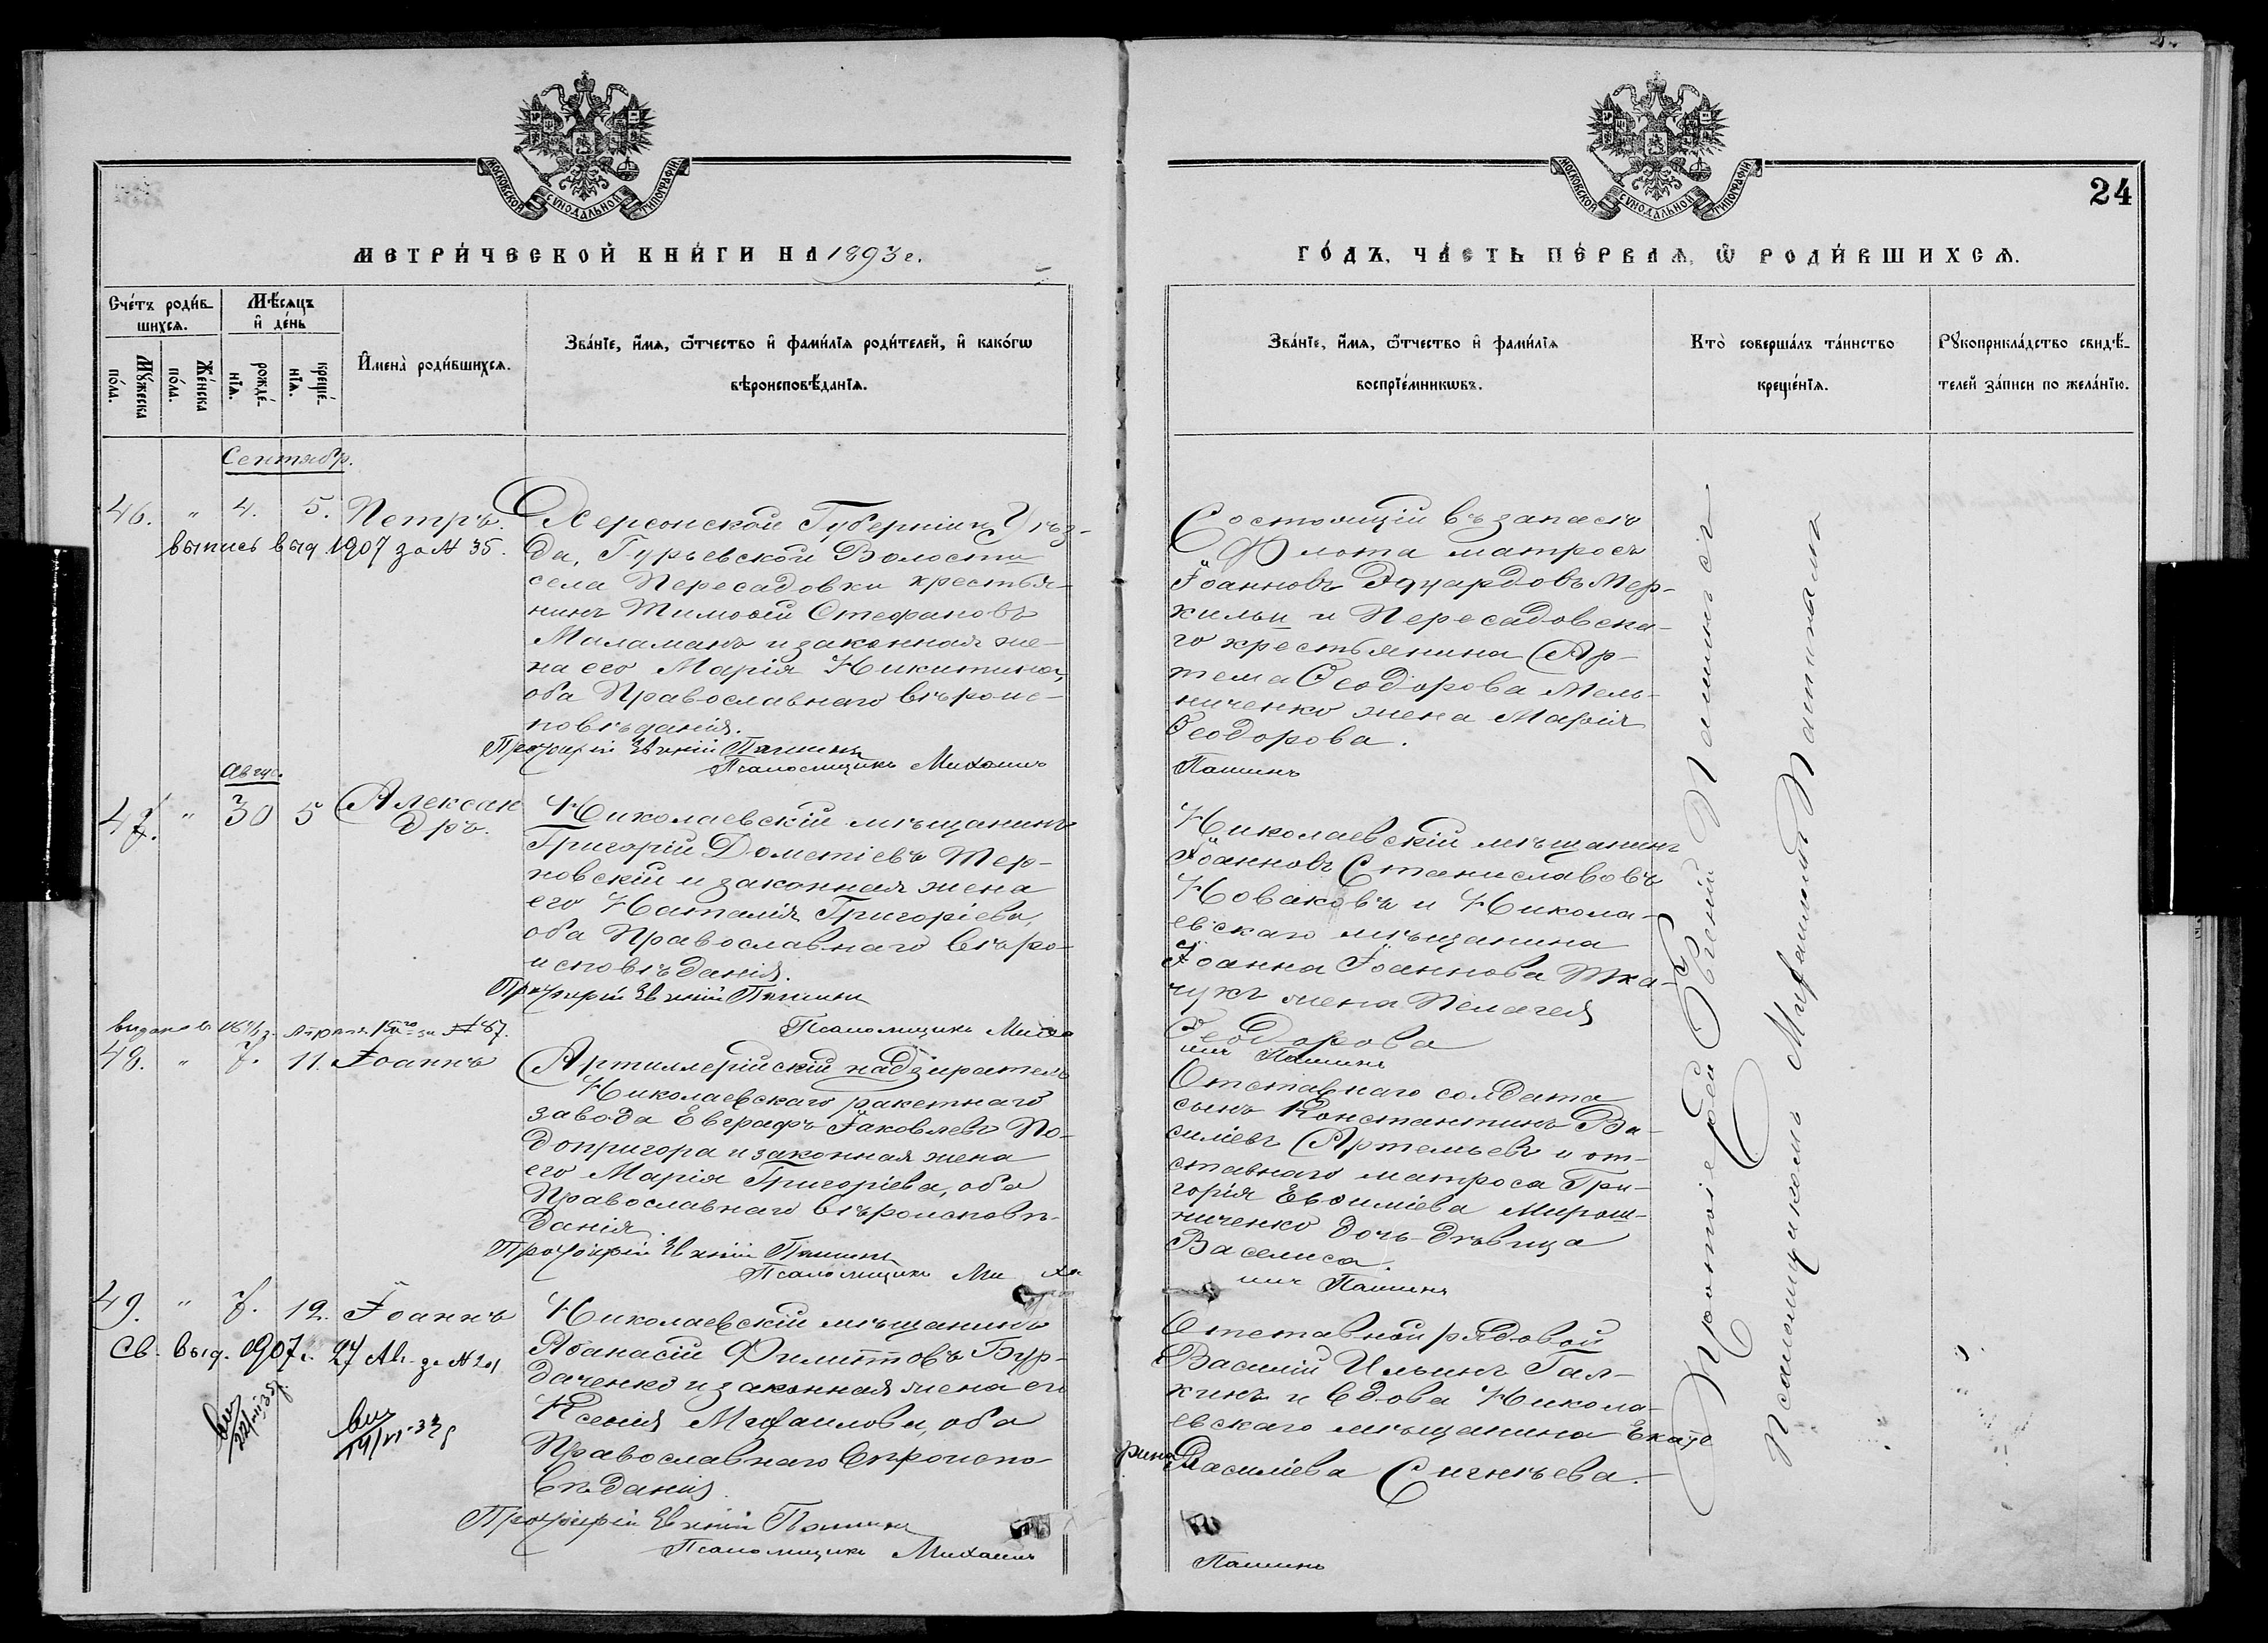 МОСКОВСКОЙ СѴНОДАЛЬНОЙ ТИПОГРАФІИ
МЕТРИ́ЧЕСКОЙ КНИ́ГИ НА 1893 г.
Сче́тъ роди́вшихсѧ.
Мѣ́сѧцъ и҆ де́нь
Мꙋ́жеска по́ла.
Же́нска по́ла.
рожде́нїѧ.
креще́нїѧ.
И҆мена̀ роди́вшихсѧ.
Зва́нїе, и҆́мѧ, ѻ҆́тчество и҆ фами́лїѧ роди́телей, и҆ како́гѡ
вѣроисповѣ́данїѧ.
Сентябр.
46. " 4. 5. Петръ.
выпись выд 1907 за № 35.
Херсонской Губерніи и Уѣз-
да, Гурьевской Волости
села Пересадовки крестья-
нинъ Тимоѳей Стефановъ
Миламанъ и законная же-
на его Марія Никитина,
оба Православнаго вѣроис-
повѣданія.
Протоіерей Евгеній Пашинъ
Псаломщикъ Михаилъ
Авгус.
47. " 30 5 Алексан
дръ.
Николаевскій мѣщанинъ
Григорій Дометіевъ Тер-
новскій и законная жена
его Наталія Григоріева,
оба Православнаго вѣро-
исповѣданія.
Протоіерей Евгеній Пашинъ
Псаломщикъ Миха
за № 87.
48. " 7. 11. Іоаннъ
Артиллерійскій надзиратель
Николаевскаго ракетнаго
завода Евграфъ Іаковлевъ По-
допригора и законная жена
его Марія Григоріева, оба
Православнаго вѣроисповѣ-
данія.
Протоіерей Евгеній Пашинъ
Псаломщикъ Ми ха
49. " 7. 12. Іоаннъ
Св. выд. 1907 г. 27 Ав. за №
Николаевскій мѣщанинъ
Аѳанасій Филипповъ Бур-
даченко и законная жена его
Ксенія Михаилова, оба
Православнаго вѣроиспо-
вѣданія.
Протоіерей Евгеній Пашинъ
Псаломщикъ Михаилъ
МОСКОВСКОЙ СѴНОДАЛЬНОЙ ТИПОГРАФІИ
24
ГО́ДЪ, ЧА́СТЬ ПЕ́РВАѦ, Ѡ҆ РОДИ́ВШИХСѦ.
Зва́нїе, и҆́мѧ, ѻ҆́тчество и҆ фами́лїѧ
воспрїе́мникѡвъ.
Кто̀ соверша́лъ та́инство
креще́нїѧ.
Рꙋкоприкла́дство свидѣ́-
телей за́писи по жела́нїю.
Состоящій въ запасѣ
Флота матросъ
Іоанновъ Эдуардовъ Мер-
кильи и Пересадовска-
го крестьянина Ар-
тема Ѳеодорова Мель-
ниченко жена Марія
Ѳеодорова.
Пашинъ
Николаевскій мѣщанинъ
Іоанновъ Станиславовъ
Новаковъ и Никола-
евскаго мѣщанина
Іоанна Іоаннова Тка-
чукъ жена Пелагея
Ѳеодорова
илъ Пашинъ
Отставнаго солдата
сынъ Константинъ Ва-
силіевъ Артемьевъ и от-
ставнаго матроса Гри-
горія Евѳиміева Мирош-
ниченко дочь-дѣвица
Васелиса.
илъ Пашинъ
Отставной рядовой
Василій Ильинъ Гал-
кинъ и вдова Никола-
евскаго мѣщанина Екате
рина Василіева Сигнѣева.
Пашинъ
Протоіерей Евгеній Пашинъ съ
Псаломщикомъ Михаиломъ Пашинымъ